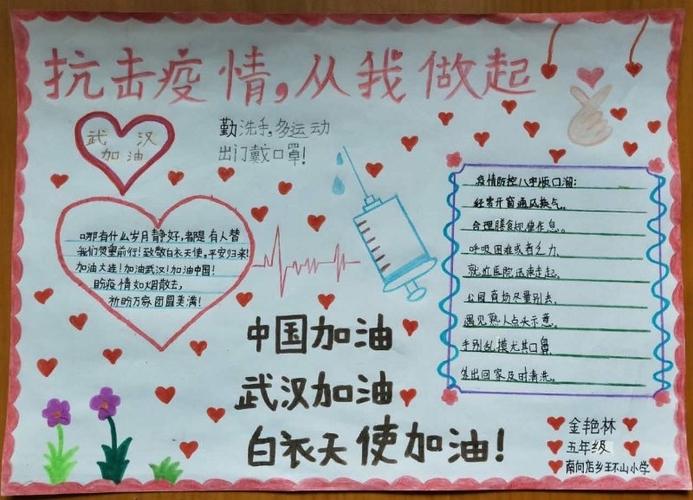 抗击疫情,从我做起
武汉
加油
勤洗手,多运动
出门戴口罩!
哪有什么岁月静好,都是有人替
我们负重前行!致敬白衣天使,平安归来!
加油大连!加油武汉!加油中国!
盼疫情如烟散去,
祈盼万家团圆美满!
中国加油
武汉加油
白衣天使加油!
疫情防控八字版口溜:
经常开窗通风换点。
合理膳食规律作息。
呼吸困难或者乏力
就近医院法速走起。
公园商场尽量别去。
遇见熟人点头示意。
手别乱摸尤其口鼻
外出回家及时清洗。
金艳林
五年级
南向店乡王不山小学